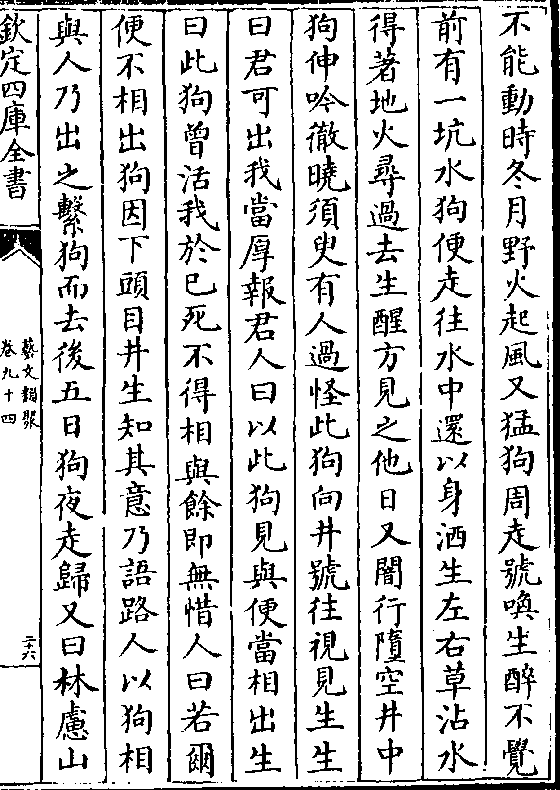 不能動時冬月野火起風又猛狗周走號喚生醉不覺
前有一坑水狗便走往水中還以身洒生左右草沾水
得著地火尋過去生醒方見之他日又闇行墮空井中
狗伸吟徹曉須臾有人過怪此狗向井號往視見生生
曰君可出我當厚報君人曰以此狗見與便當相出生
曰此狗曾活我於已死不得相與餘即無惜人曰若爾
便不相出狗因下頭目井生知其意乃語路人以狗相
與人乃出之繫狗而去後五日狗夜走歸又曰林慮山
欽定四庫全書
藝文類聚
卷九十四
二十六